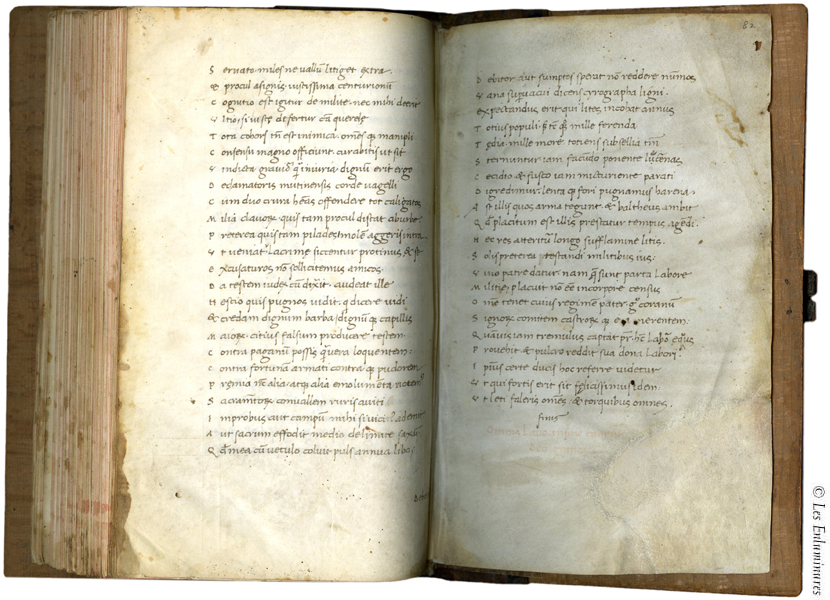 S ervato miles ne vallũ litiget extra
& procul asignis iustissima centurionũ
C ognitio est igitur de milite nec mihi deerit
V ltio si iuste defertur cã querele
T ota cohors tñ est inimica om̃es q; manipli
C onsensu magno officiunt curabitis ut sit
V indicta gravior q̃ iniuria dignũ erit ergo
D eclamatoris mutinensis corde vagelli
C um duo crura offendere tot caligatos
M ilia clavoꝝ quis tam procul distat aburbe
P reterea quis tam pilades molẽ aggeris intra
V t veniat lacrime siccentur protinus & se
E xcusaturos nõ sollicitemus amicos
D a testem iudex cũ dixit audeat ille
N escio quis pugnos vidit q dicere vidi
& credam dignum barba dignũ q; capillis
M aioꝝ citius falsum producere testem
C ontra paganũ possis q̃ vera loquentem
C ontra fortunã armati contra q; pudorem
P remia nc̃ alia atq; alia emolumẽta notem
S acramtoꝝ convallem ruris aviti
I mprobus aut campũ mihi si vici ademit
A ut sacrum effodit medio de limite saxũ
Q d̃ mea cũ vetulo coluit puls annua libo
82
D ebitor aut sumptos pergit nõ reddere nũmos
V ana supvacui dicens cyrographa ligni
Expectandus erit qui lites incohat annus
T otius populi mille ferenda
T edia mille more totiens subsellia tm̃
S ternuntur iam facundo ponente lucernas
C edicio & fusco iam micturiente parati
D igredimur lenta q; fori pugnamus harena
A st illis quos arma tegunt & baltheus ambit
Q d̃ placitum est illis prestatur tempus agẽdi
N ec res atteritur longo sufflamine litis
S olis preterea testandi militibus ius
V ivo patre datur nam q̃ sunt parta labore
M ilitie placuit nõ ẽe incorpore census
O mne tenet cuius regimẽ pater gº coranum
S ignoꝝ comitem castroꝝ q; merentem
Q uamvis iam tremulus captat pr̃ hc̃ labor equus
P rovehit & pulcro reddit sua dona labori
I pius certe ducis hoc referre videtur
V t qui fortis erit sit felicissimus idem
V t leti faleris om̃es & torquibus omnes
finis
© Les Enluminures